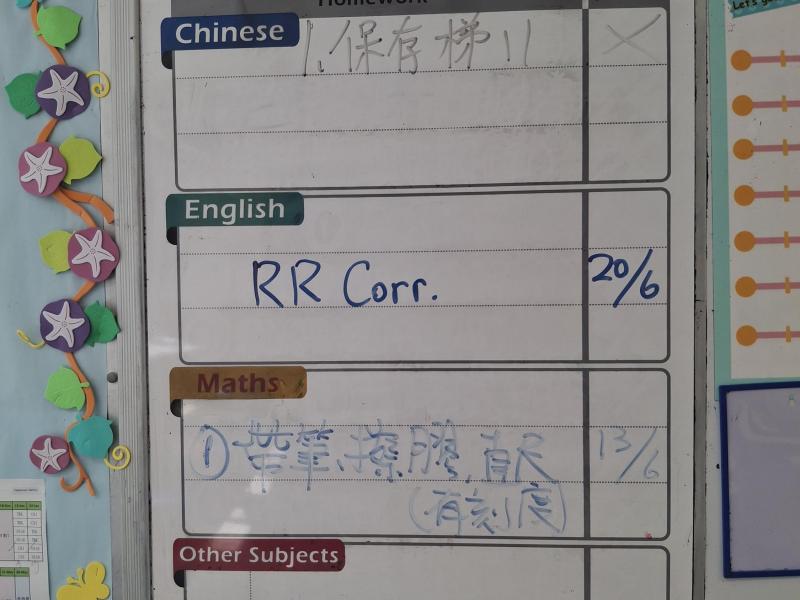 Homework
Let's g
Chinese
1. 保存梯11 ×
English
RR Corr. 20/6
Maths
① 帶筆、擦膠、直尺 13/6
(有刻度)
Other Subjects